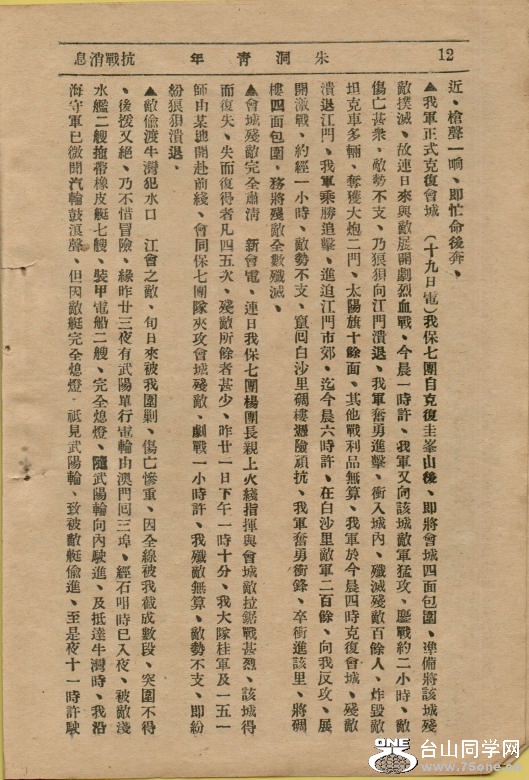 12
朱洞青年
抗戰消息
近、槍聲一响、即忙命後奔、
▲我軍正式克復會城 (十九日電)我保七團自克復圭峯山後、即將會城四面包圍、準備將該城殘
敵撲滅、故連日來與敵展開劇烈血戰、今晨一時許、我軍又向該城敵軍猛攻、鏖戰約二小時、敵
傷亡甚衆、敵勢不支、乃狼狽向江門潰退、我軍奮勇進擊、衝入城內、殲滅殘敵百餘人、炸毀敵
坦克車多輛、奪獲大炮二門、太陽旗十餘面、其他戰利品無算、我軍於今晨四時克復會城、殘敵
潰退江門、我軍乘勝追擊、進迫江門市郊、迄今晨六時許、在白沙里敵軍二百餘、向我反攻、展
開激戰、約經一小時、敵勢不支、竄回白沙里碉樓憑險頑抗、我軍奮勇衝鋒、卒衝進該里、將碉
樓四面包圍、務將殘敵全數殲滅、
▲會城殘敵完全肅清 新會電、連日我保七團楊團長親上火綫指揮與會城敵拉鋸戰甚烈、該城得
而復失、失而復得者凡四五次、殘敵所餘者甚少、昨廿一日下午一時十分、我大隊桂軍及一五一
師由某地開赴前綫、會同保七團隊夾攻會城殘敵、劇戰一小時許、我殲敵無算、敵勢不支、即紛
紛狼狽潰退、
▲敵偷渡牛灣犯水口 江會之敵、旬日來被我圍剿、傷亡慘重、因全線被我截成數段、突圍不得
、後援又絕、乃不惜冒險、緣昨廿三夜有武陽單行電輪由澳門囘三埠、經石咀時已入夜、被敵淺
水艦二艘拖帶橡皮艇七艘、裝甲電船二艘、完全熄燈、隨武陽輪向內駛進、及抵達牛灣時、我沿
海守軍已微聞汽輪鼓浪聲、但因敵艇完全熄燈、祇見武陽輪、致被敵艇偷進、至是夜十一時許駛
ONE
台山同学网
www.75one.cn